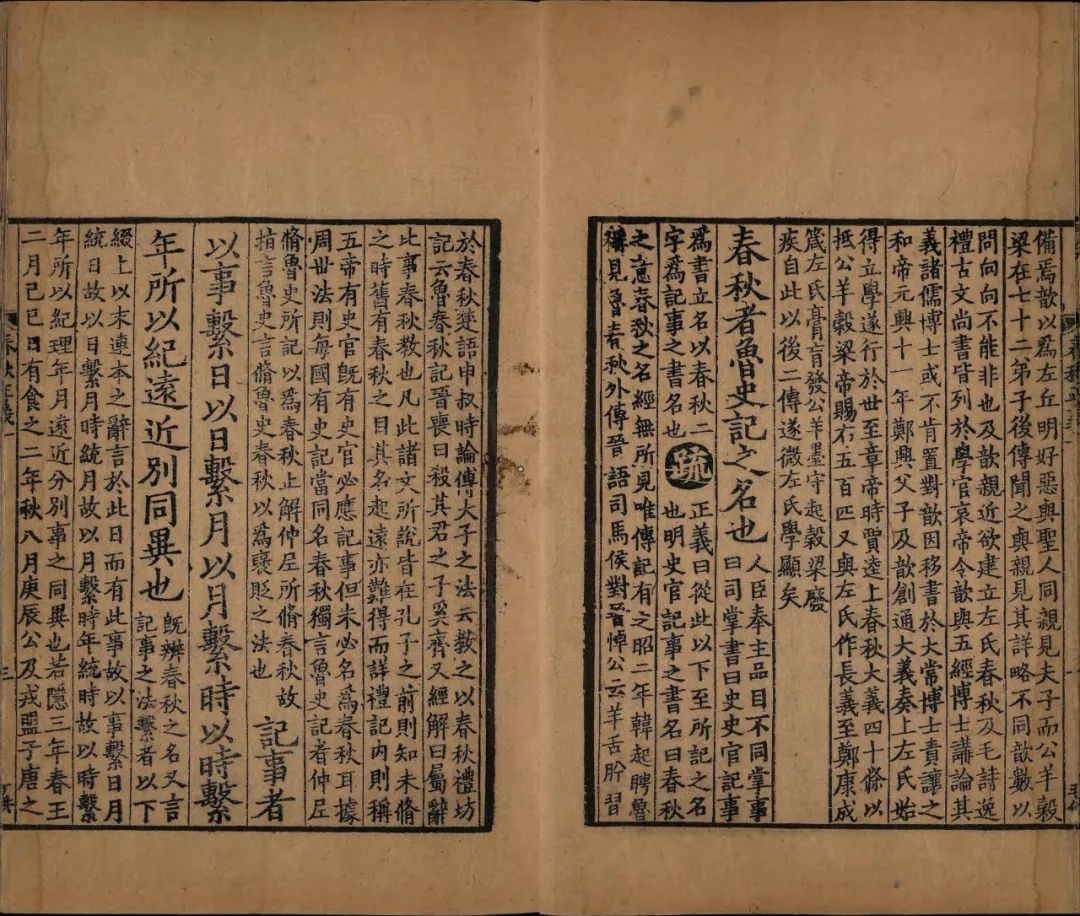 備焉歆以爲左丘明好惡與聖人同親見夫子而公羊穀
梁在七十二弟子後傳聞之與親見其詳略不同歆數以
問向向不能非也及歆親近欲建立左氏春秋及毛詩逸
禮古文尚書皆列於學官哀帝令歆與五經博士講論其
義諸儒博士或不肯置對歆因移書於大常博士責讓之
和帝元興十一年鄭興父子及歆創通大義奏上左氏始
得立學遂行於世至章帝時賈逵上春秋大義四十條以
抵公羊穀梁帝賜布五百匹又與左氏作長義至鄭康成
箴左氏膏肓發公羊墨守起穀梁廢
疾自此以後二傳遂微左氏學顯矣
春秋者魯史記之名也
人臣奉主品目不同掌事
曰司掌書曰史史官記事
爲書立名以春秋二
字爲記事之書名也
疏
正義曰從此以下至所記之名
也明史官記事之書名曰春秋
之意春秋之名經無所見唯傳記有之昭二年韓起聘魯
稱見魯春秋外傳晉語司馬侯對晉悼公云羊舌肸習
於春秋楚語申叔時論傅大子之法云教之以春秋禮坊
記云魯春秋記晉喪曰殺其君之子奚齊又經解曰屬辭
此事春秋教也凡此諸文所說皆在孔子之前則知未脩
之時舊有春秋之目其名起遠亦難得而詳禮記內則稱
五帝有史官既有史官必應記事但未必名爲春秋耳據
周世法則每國有史記當同名春秋獨言魯史記者仲尼
脩魯史所記以爲春秋止解仲尼所脩春秋故
指言魯史言脩魯史春秋以爲襃貶之法也
記事者
以事繫日以日繫月以月繫時以時繫
年所以紀遠近別同異也
既辨春秋之名又言
記事之法繫者以下
綴上以末連本之辭言於此日而有此事故以事繫日月
統日故以日繫月時統月故以月繫時年統時故以時繫
年所以紀理年月遠近分別事之同異也若隱三年春王
二月己巳日有食之二年秋八月庚辰公及戎盟于唐之
三